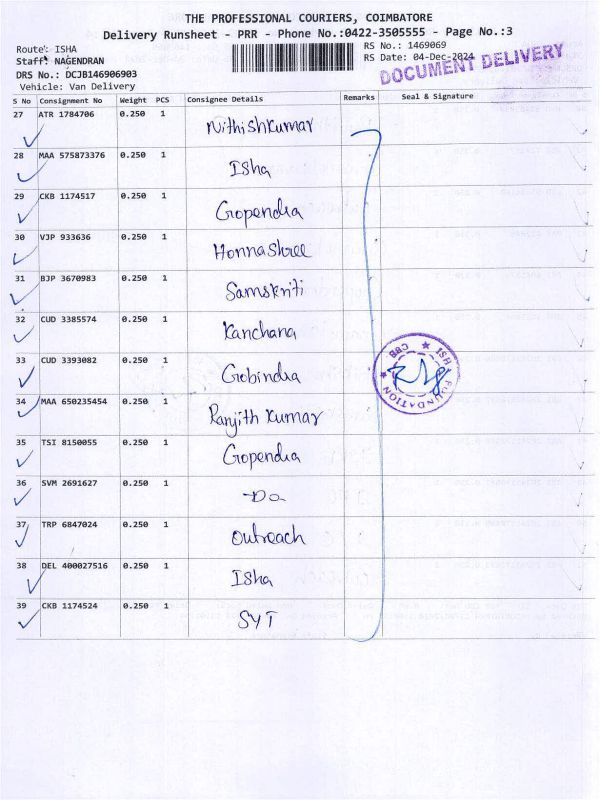 THE PROFESSIONAL COURIERS, COIMBATORE
Delivery Runsheet - PRR - Phone No.:0422-3505555 - Page No.:3
Route: ISHA
Staff: NAGENDRAN
DRS No.: DCJB146906903
Vehicle: Van Delivery
RS No.: 1469069
RS Date: 04-Dec-2024
DOCUMENT DELIVERY
S No Consignment No Weight PCS Consignee Details Remarks Seal & Signature
27 ATR 1784706 0.250 1 Nithishkumar
28 MAA 575873376 0.250 1 Isha
29 CKB 1174517 0.250 1 Gopendra
30 VJP 933636 0.250 1 Honnashree
31 BJP 3670983 0.250 1 Samskriti
32 CUD 3385574 0.250 1 Kanchana
33 CUD 3393082 0.250 1 Gobindra
34 MAA 650235454 0.250 1 Ranjith Kumar
35 TSI 8150055 0.250 1 Gopendra
36 SVM 2691627 0.250 1 Do
37 TRP 6847024 0.250 1 Outreach
38 DEL 400027516 0.250 1 Isha
39 CKB 1174524 0.250 1 SYT
FOUNDATION